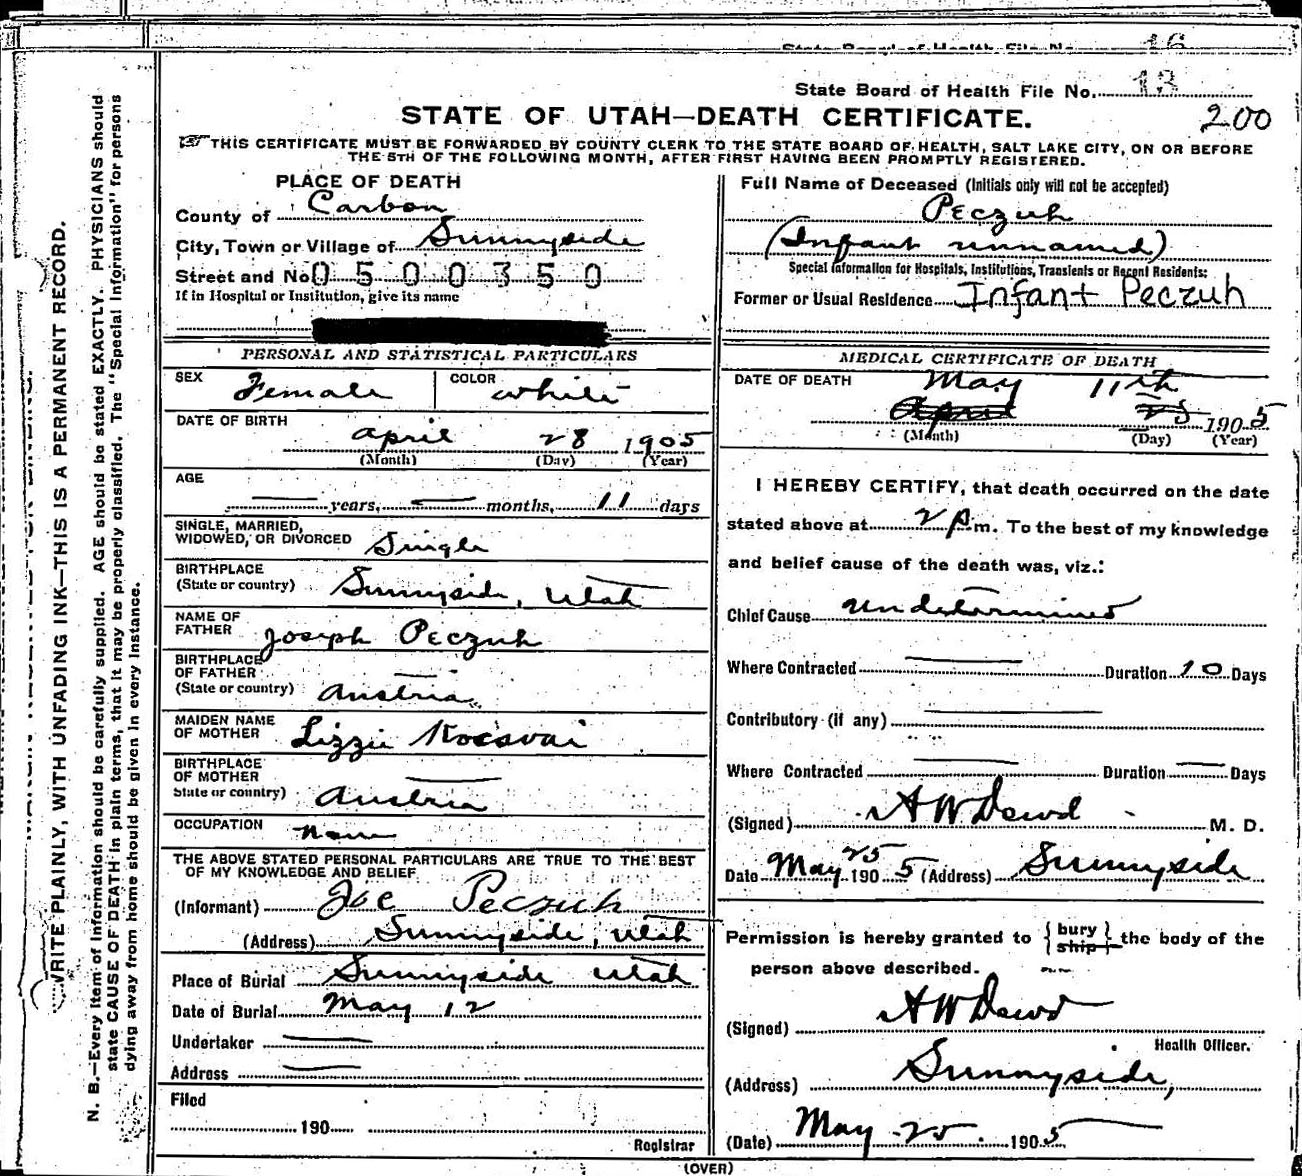 State Board of Health File No. 16
State Board of Health File No. 13
200
STATE OF UTAH—DEATH CERTIFICATE.
THIS CERTIFICATE MUST BE FORWARDED BY COUNTY CLERK TO THE STATE BOARD OF HEALTH, SALT LAKE CITY, ON OR BEFORE
THE 5TH OF THE FOLLOWING MONTH, AFTER FIRST HAVING BEEN PROMPTLY REGISTERED.
PLACE OF DEATH
County of Carbon
City, Town or Village of Sunnyside
Street and No. 0500350
If in Hospital or Institution, give its name
PERSONAL AND STATISTICAL PARTICULARS
SEX Female COLOR white
DATE OF BIRTH
april 28 1905
(Month) (Day) (Year)
AGE
— years, — months, 11 days
SINGLE, MARRIED,
WIDOWED, OR DIVORCED Single
BIRTHPLACE
(State or country) Sunnyside, Utah
NAME OF
FATHER Joseph Peczuh
BIRTHPLACE
OF FATHER
(State or country) Austria
MAIDEN NAME
OF MOTHER Lizzie
BIRTHPLACE
OF MOTHER
State or country) Austria
OCCUPATION None
THE ABOVE STATED PERSONAL PARTICULARS ARE TRUE TO THE BEST
OF MY KNOWLEDGE AND BELIEF
(Informant) Joe Peczuh
(Address) Sunnyside, Utah
Place of Burial Sunnyside Utah
Date of Burial May 12
Undertaker —
Address —
Filed
190
Registrar
Full Name of Deceased (Initials only will not be accepted)
Peczuh
(Infant unnamed)
Special Information for Hospitals, Institutions, Transients or Recent Residents:
Former or Usual Residence Infant Peczuh
MEDICAL CERTIFICATE OF DEATH
DATE OF DEATH May 11th
April 25 1905
(Month) (Day) (Year)
I HEREBY CERTIFY, that death occurred on the date
stated above at 2 p.m. To the best of my knowledge
and belief cause of the death was, viz.:
Chief Cause undetermined
Where Contracted — Duration 10 Days
Contributory (if any) —
Where Contracted — Duration — Days
(Signed) A W Dowd M. D.
Date May 25 1905 (Address) Sunnyside
Permission is hereby granted to { bury ship } the body of the
person above described.
(Signed) A W Dowd
Health Officer.
(Address) Sunnyside,
(Date) May 25 1905
(OVER)
WRITE PLAINLY, WITH UNFADING INK—THIS IS A PERMANENT RECORD.
N. B.—Every item of information should be carefully supplied. AGE should be stated EXACTLY. PHYSICIANS should
state CAUSE OF DEATH in plain terms, that it may be properly classified. The "Special Information" for persons
dying away from home should be given in every instance.